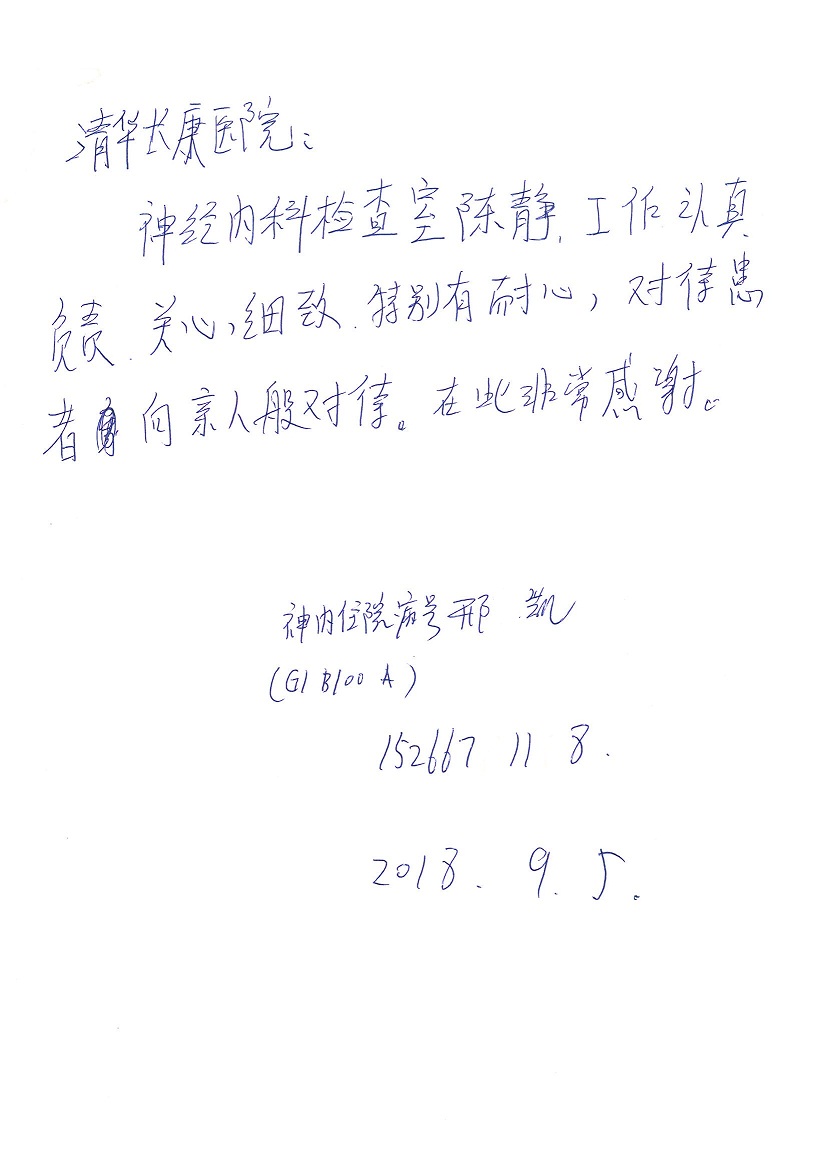 清华长康医院：
神经内科检查室陈静，工作认真
负责、关心，细致、特别有耐心，对待患
者向亲人般对待。在此非常感谢。
神内住院病号邢凯
(G1B100A)
152667 11 8.
2018. 9. 5.